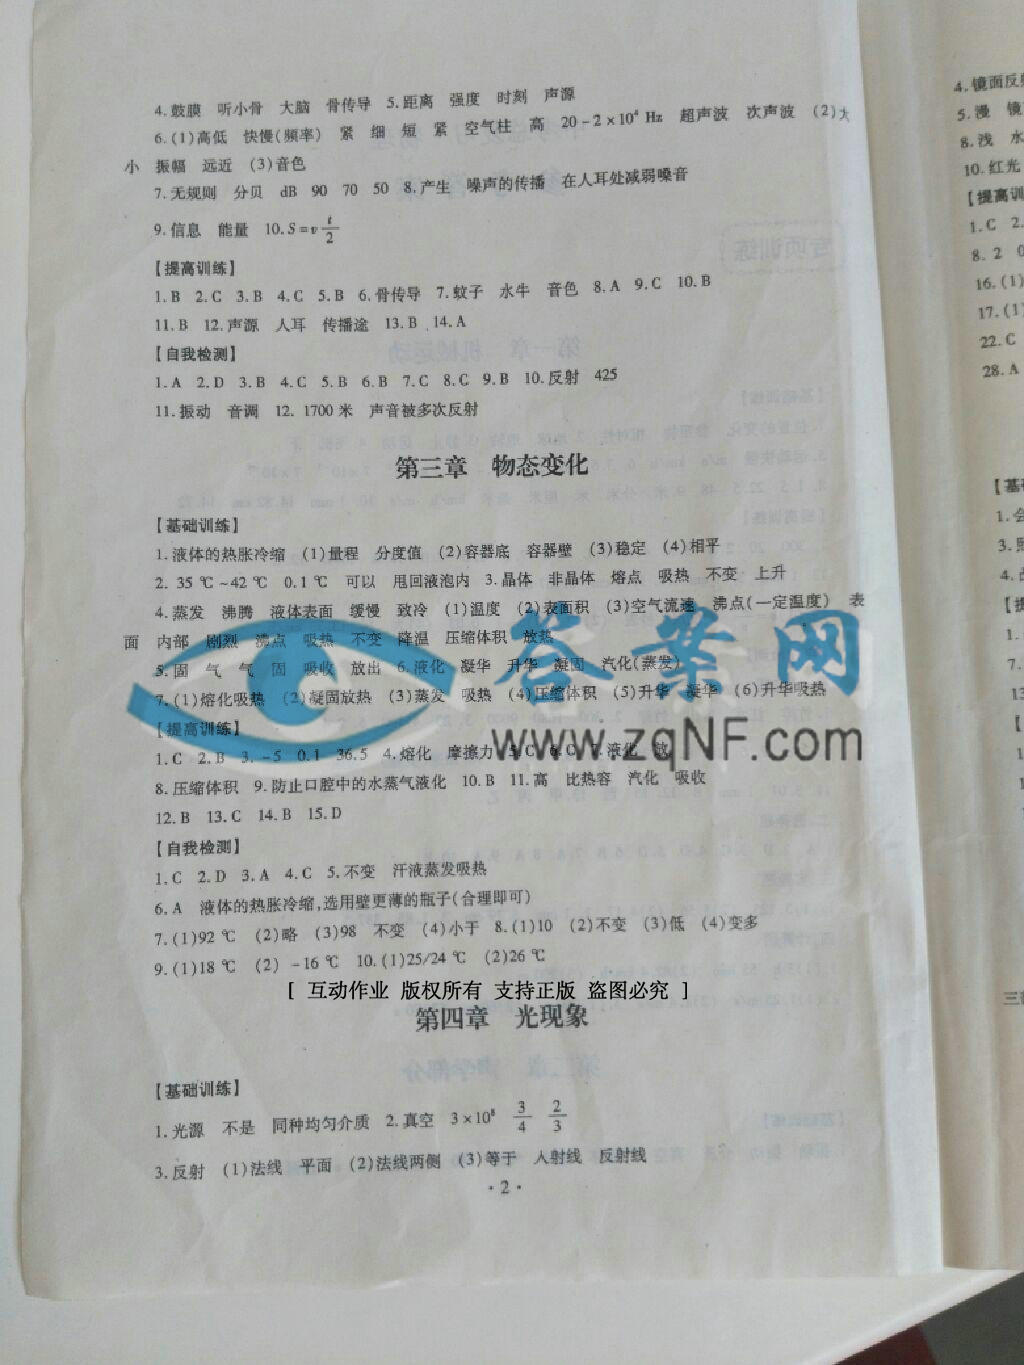 4.鼓膜 听小骨 大脑 骨传导 5.距离 强度 时刻 声源
6.(1)高低 快慢(频率) 紧 细 短 紧 空气柱 高 20-2×10⁴ Hz 超声波 次声波 (2)大
小 振幅 远近 (3)音色
7.无规则 分贝 dB 90 70 50 8.产生 噪声的传播 在人耳处减弱噪音
9.信息 能量 10.S=v t/2
【提高训练】
1.B 2.C 3.B 4.C 5.B 6.骨传导 7.蚊子 水牛 音色 8.A 9.C 10.B
11.B 12.声源 人耳 传播途 13.B 14.A
【自我检测】
1.A 2.D 3.B 4.C 5.B 6.B 7.C 8.C 9.B 10.反射 425
11.振动 音调 12.1700米 声音被多次反射
第三章 物态变化
【基础训练】
1.液体的热胀冷缩 (1)量程 分度值 (2)容器底 容器壁 (3)稳定 (4)相平
2.35℃~42℃ 0.1℃ 可以 甩回液泡内 3.晶体 非晶体 熔点 吸热 不变 上升
4.蒸发 沸腾 液体表面 缓慢 致冷 (1)温度 (2)表面积 (3)空气流速 沸点(一定温度) 表
面 内部 剧烈 沸点 吸热 不变 降温 压缩体积 放热
5.固 气 气 固 吸收 放出 6.液化 凝华 升华 凝固 汽化(蒸发)
7.(1)熔化吸热 (2)凝固放热 (3)蒸发 吸热 (4)压缩体积 (5)升华 凝华 (6)升华吸热
【提高训练】
1.C 2.B 3.-5 0.1 36.5 4.熔化 摩擦力 5.C 6.C 7.液化 放
8.压缩体积 9.防止口腔中的水蒸气液化 10.B 11.高 比热容 汽化 吸收
12.B 13.C 14.B 15.D
【自我检测】
1.C 2.D 3.A 4.C 5.不变 汗液蒸发吸热
6.A 液体的热胀冷缩,选用壁更薄的瓶子(合理即可)
7.(1)92℃ (2)略 (3)98 不变 (4)小于 8.(1)10 (2)不变 (3)低 (4)变多
9.(1)18℃ (2)-16℃ 10.(1)25/24℃ (2)26℃
[ 互动作业 版权所有 支持正版 盗图必究 ]
第四章 光现象
【基础训练】
1.光源 不是 同种均匀介质 2.真空 3×10⁸ 3/4 2/3
3.反射 (1)法线 平面 (2)法线两侧 (3)等于 入射线 反射线
·2·
答案网
www.zqNF.com
4.镜面反射
5.漫 镜
8.浅 水
10.红光
【提高训
1.C 2.
8.2 0
16.(1)
17.(1)
22.C
28.A
【基
1.会